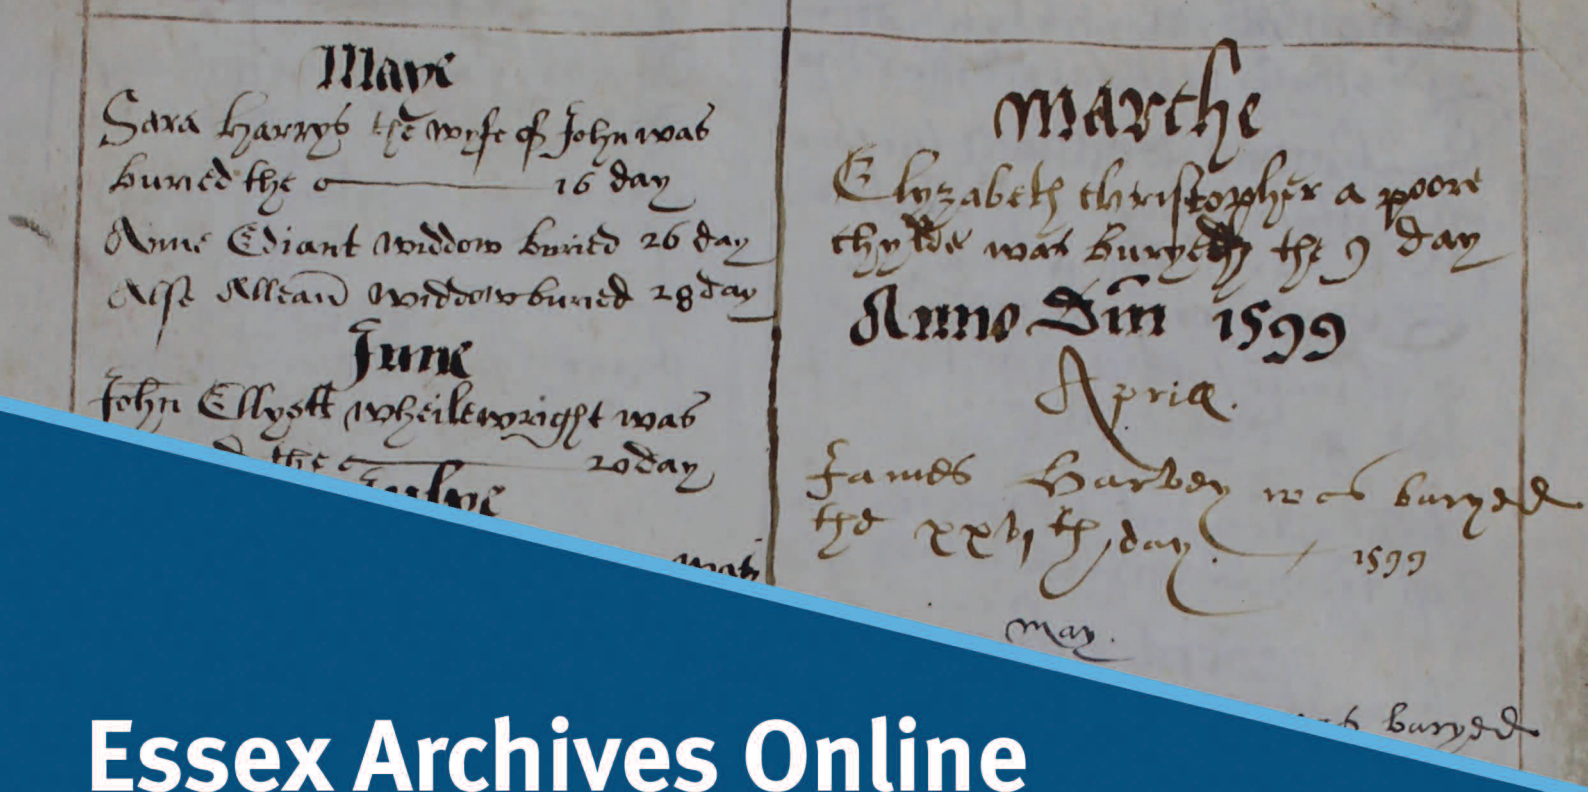 Maye
Sara Harrys the wyfe of John was
buried the 16 day
Anne Ediant widdow buried 26 day
Alse Allean widdow buried 28 day
June
John Ellyott wheilewright was
the 20 day
Julye
Marche
Elyzabeth Christopher a poore
chylde was buryed the 9 day
Anno Dm 1599
Aprill.
James Harvey was buryed
the xxvith day 1599
May.
buryed
Essex Archives Online